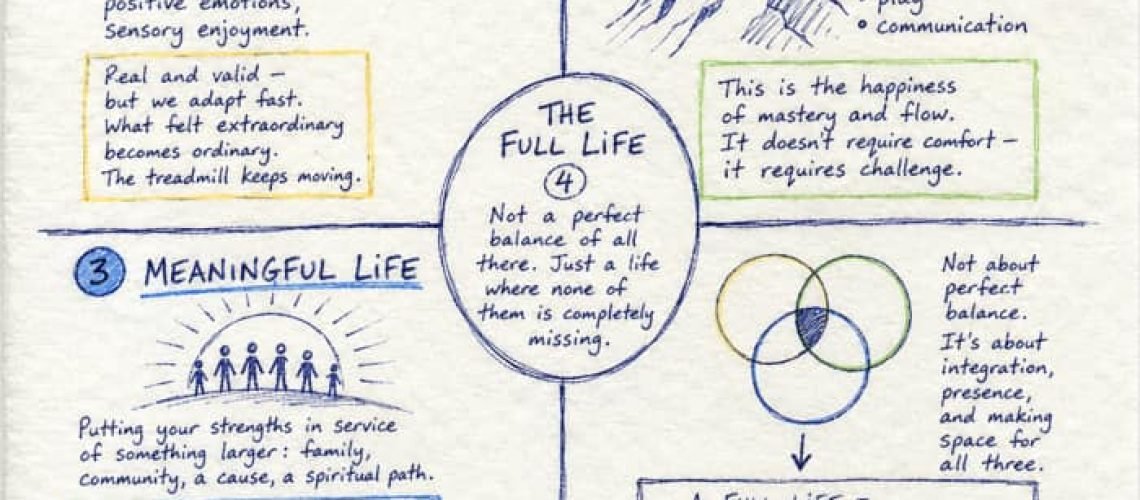 positive emotions,
sensory enjoyment.
Real and valid —
but we adapt fast.
What felt extraordinary
becomes ordinary.
The treadmill keeps moving.
• play
• communication
This is the happiness
of mastery and flow.
It doesn't require comfort —
it requires challenge.
THE
FULL LIFE
4
Not a perfect
balance of all
there. Just a life
where none of
them is completely
missing.
3 MEANINGFUL LIFE
Putting your strengths in service
of something larger: family,
community, a cause, a spiritual path.
Not about
perfect
balance.
It's about
integration,
presence,
and making
space for
all three.
A FULL LIFE =